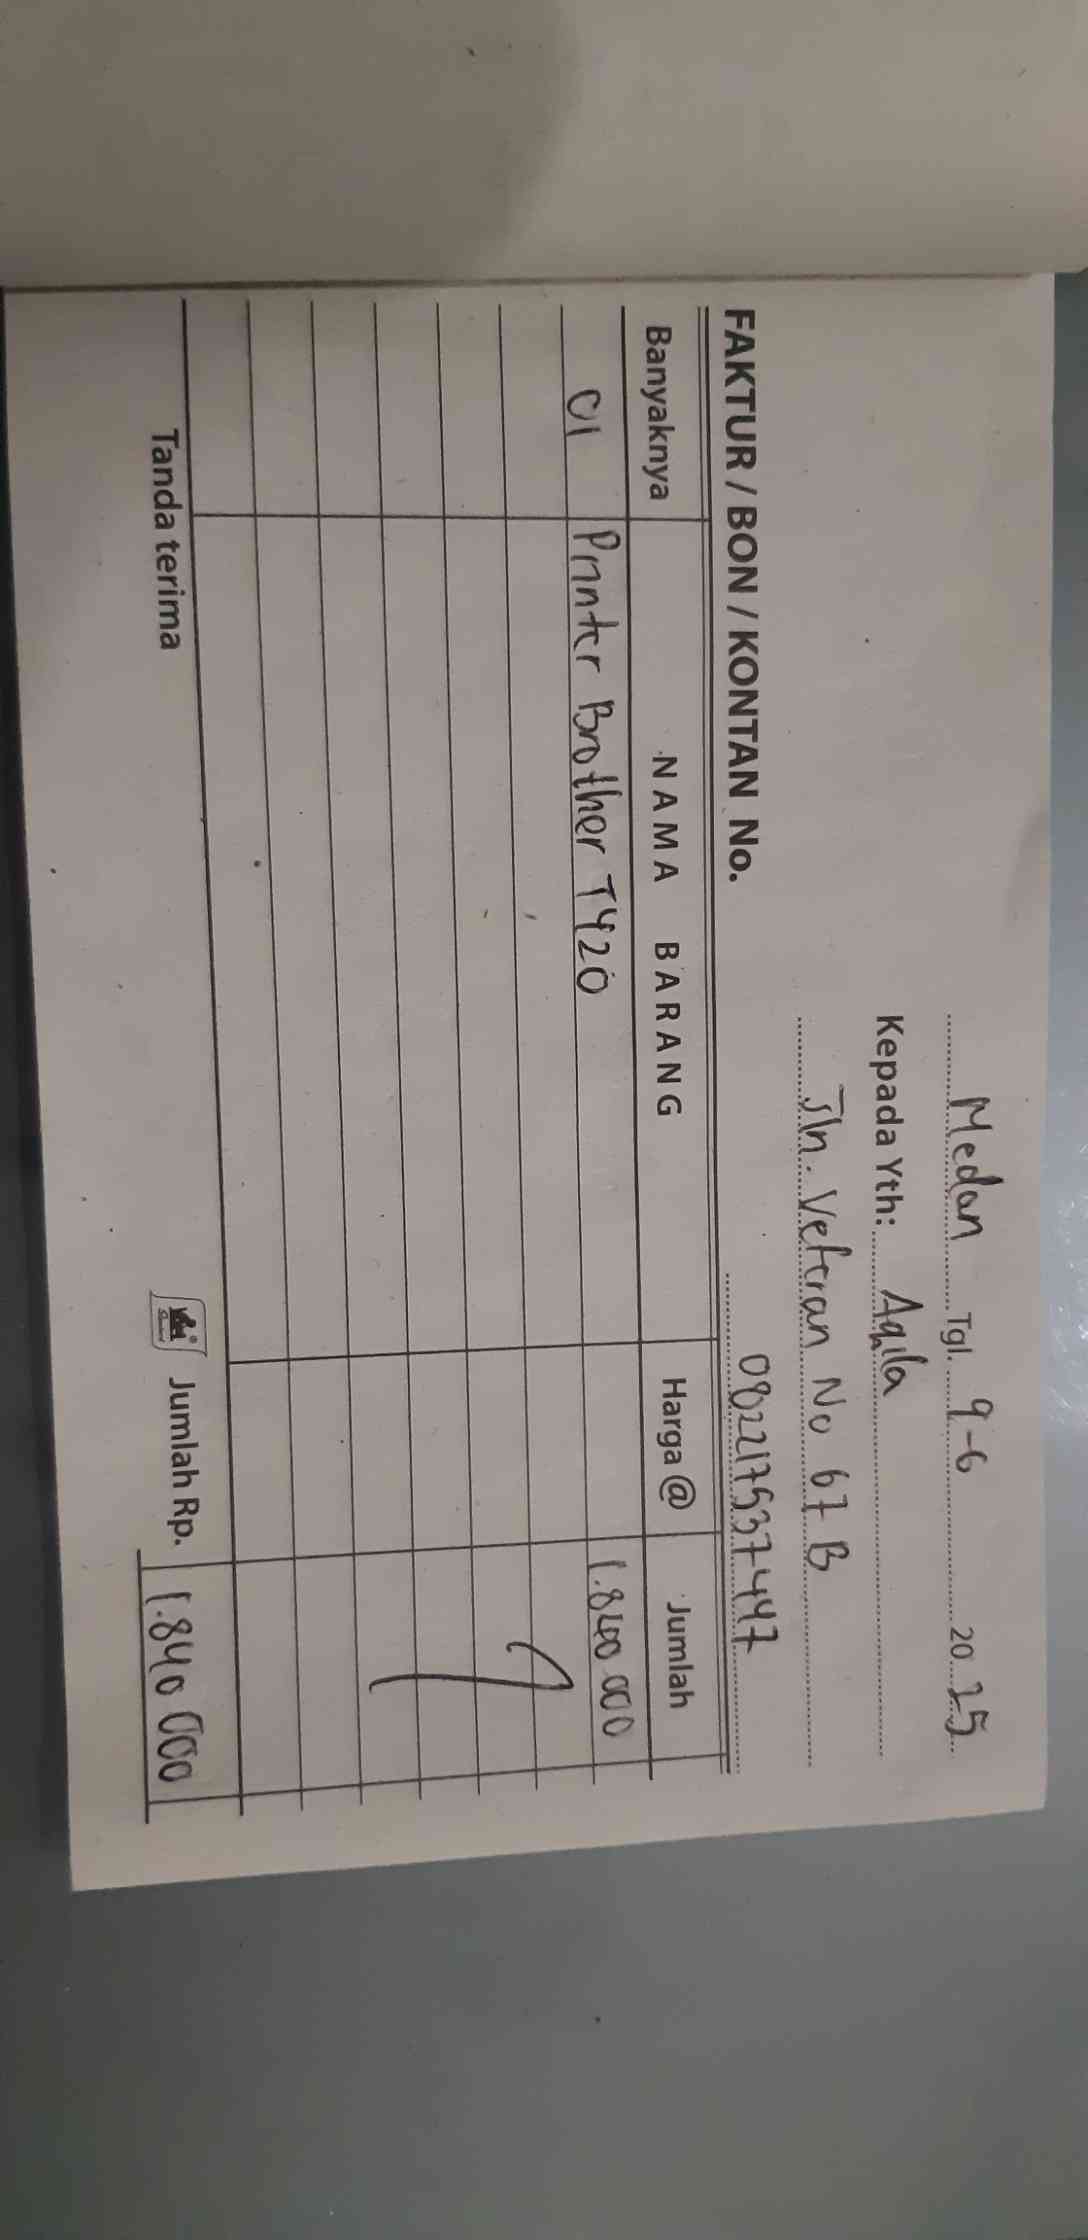 Medan Tgl. 9-6 2025
Kepada Yth: Aqila
Jln. Veteran No 67 B
082217537447
FAKTUR / BON / KONTAN No.
Banyaknya NAMA BARANG Harga @ Jumlah
01 Printer Brother T420 1.840.000
Tanda terima Jumlah Rp. 1.840 000